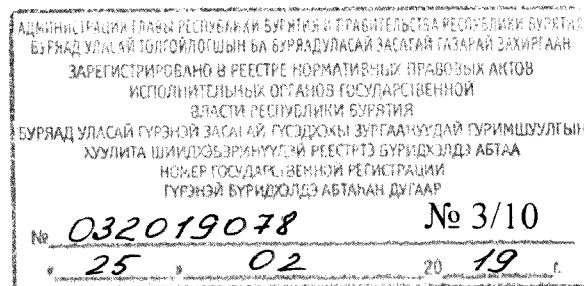 АДМИНИСТРАЦИЯ ГЛАВЫ РЕСПУБЛИКИ БУРЯТИЯ И ПРАВИТЕЛЬСТВА РЕСПУБЛИКИ БУРЯТИЯ
БУРЯАД УЛАСАЙ ТОЛГОЙЛОГШЫН БА БУРЯАД УЛАСАЙ ЗАСАГАЙ ГАЗАРАЙ ЗАХИРГААН
ЗАРЕГИСТРИРОВАНО В РЕЕСТРЕ НОРМАТИВНЫХ ПРАВОВЫХ АКТОВ
ИСПОЛНИТЕЛЬНЫХ ОРГАНОВ ГОСУДАРСТВЕННОЙ
ВЛАСТИ РЕСПУБЛИКИ БУРЯТИЯ
БУРЯАД УЛАСАЙ ГҮРЭНЭЙ ЗАСАГАЙ ГҮЙСЭДХЭХЫ ЗУРГААНУУДАЙ ГУРИМШУУЛГЫН
ХУУЛИТА ШИИДХЭБЭРИНҮҮДЭЙ РЕЕСТРТЭ БҮРИДХЭЛДЭ АБТАА
НОМЕР ГОСУДАРСТВЕННОЙ РЕГИСТРАЦИИ
ГҮРЭНЭЙ БҮРИДХЭЛДЭ АБТАҺАН ДУГААР
№ 032019078 № 3/10
« 25 » 02 20 19 г.